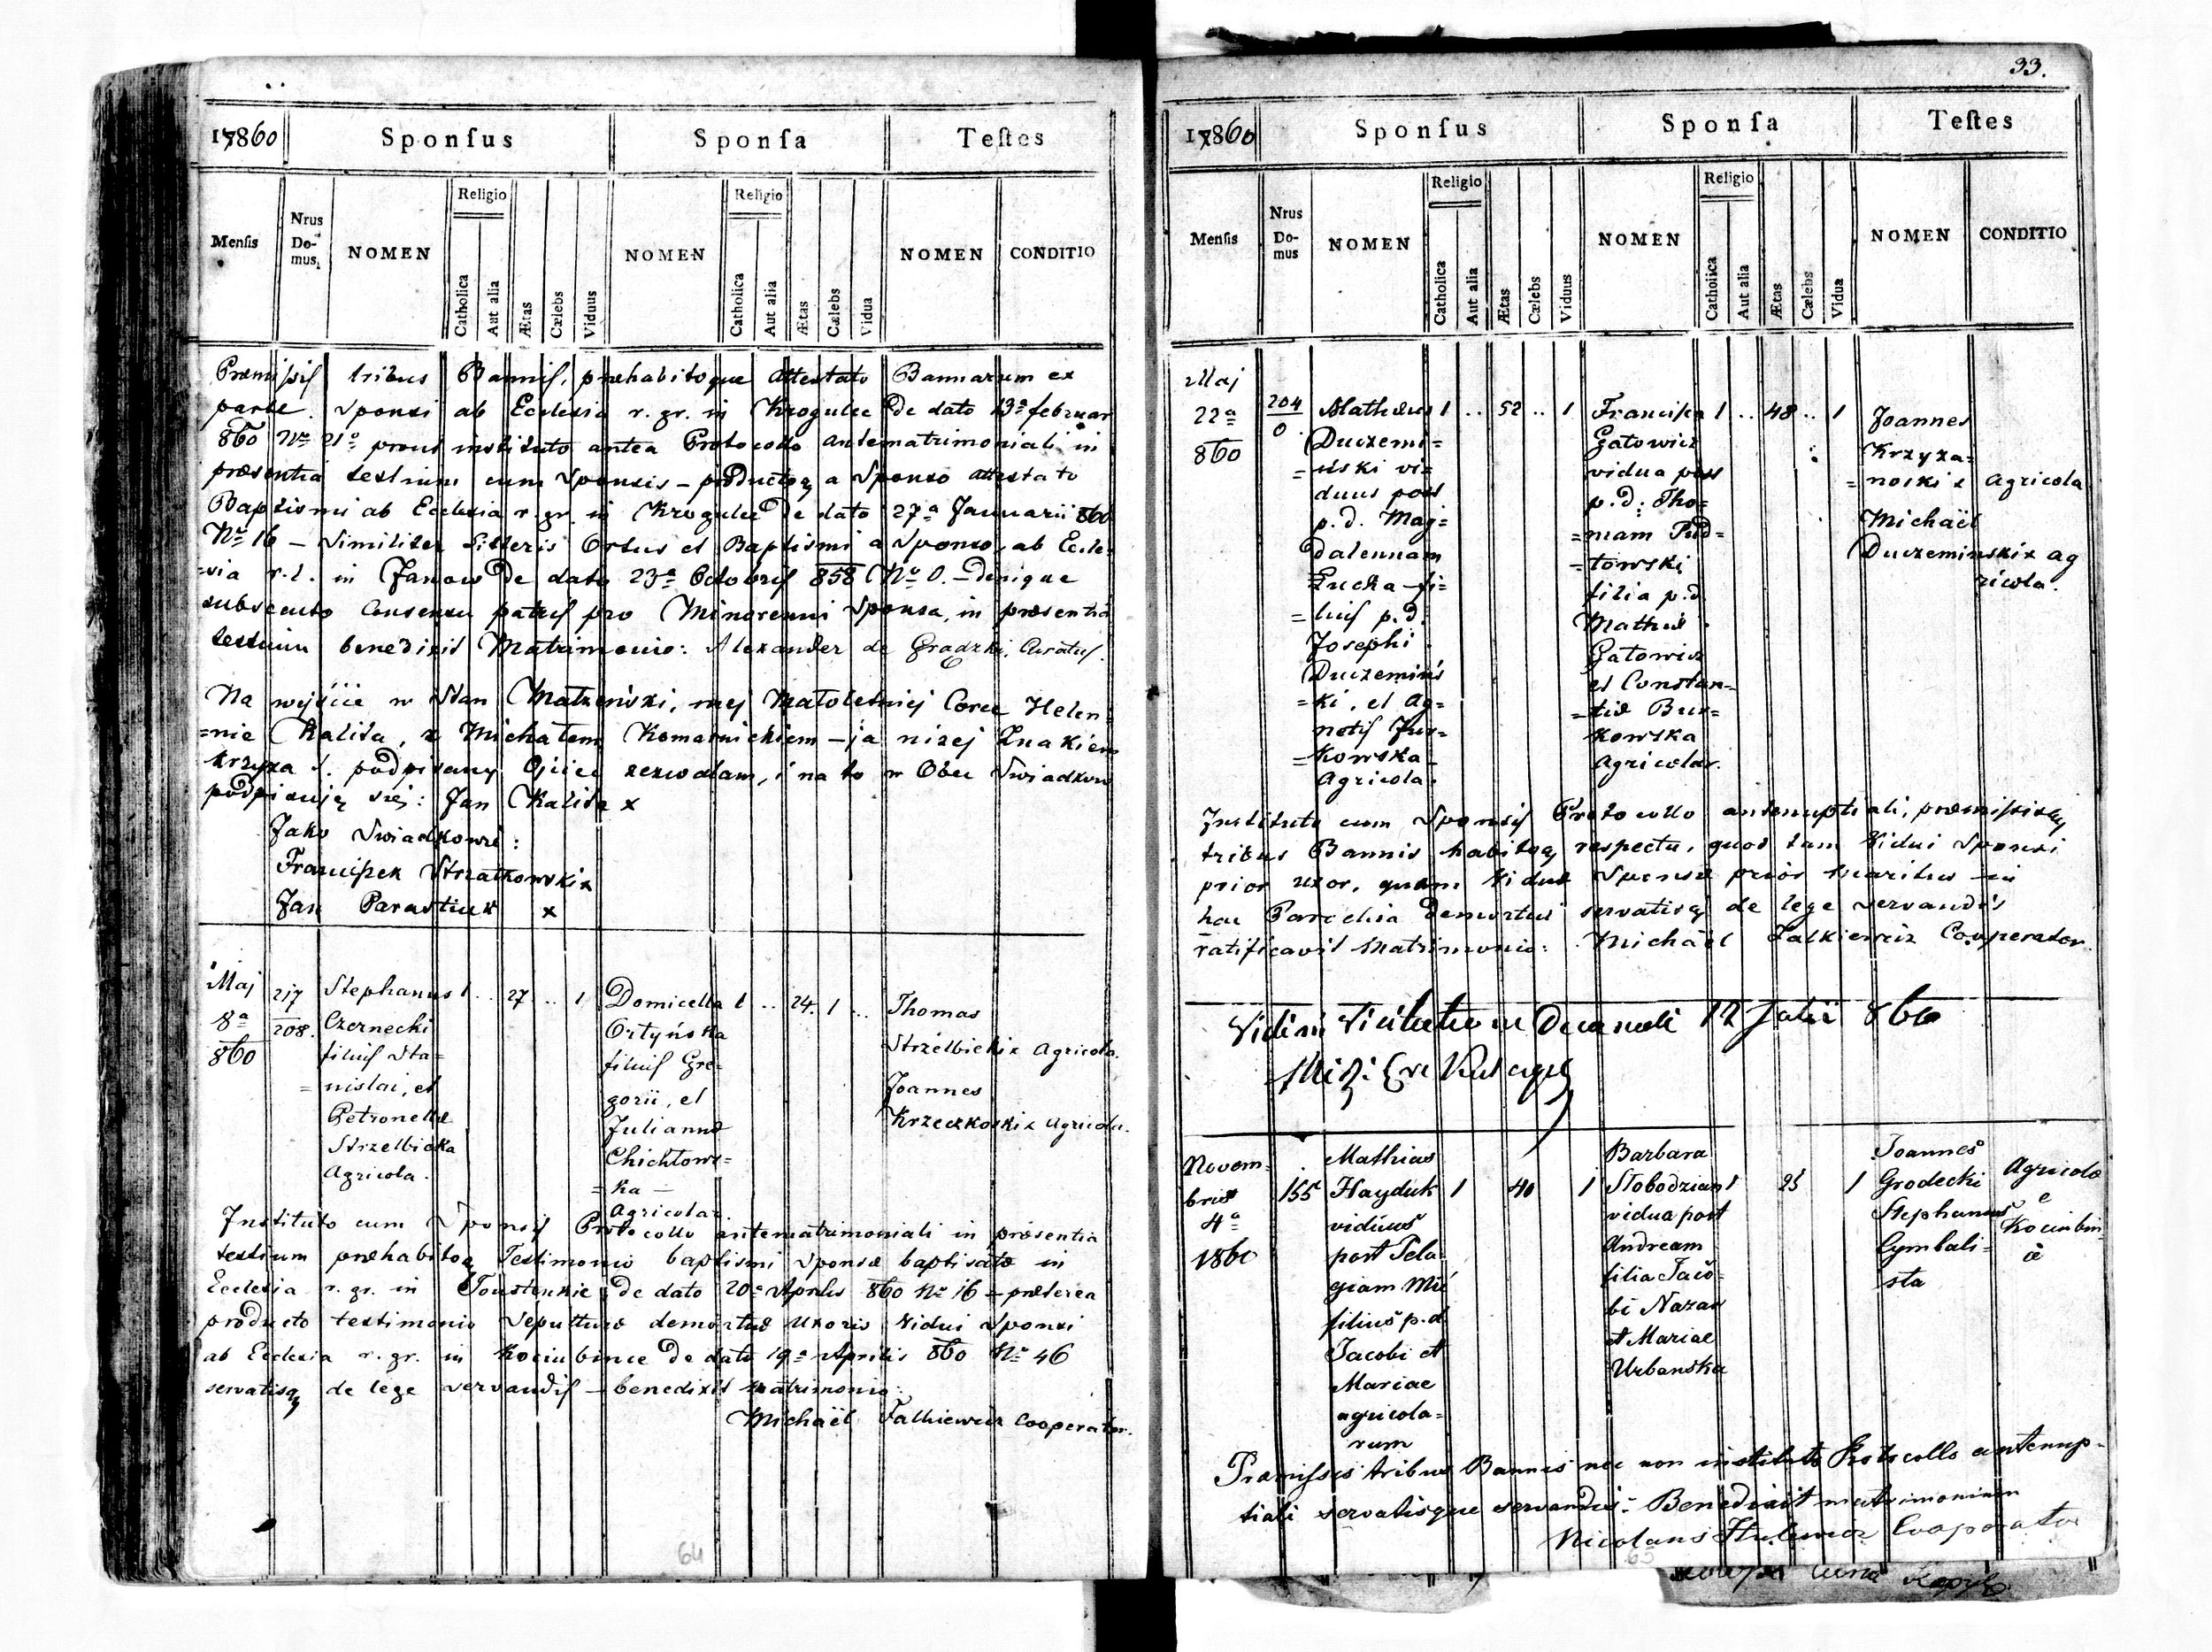 17860 Sponſus Sponſa Teſtes
Menſis Nrus Do-mus. NOMEN Religio Catholica Aut alia Ætas Cælebs Viduus NOMEN Religio Catholica Aut alia Ætas Cælebs Vidua NOMEN CONDITIO
Præmiſsiſ tribus Banniſ, præhabitoque Attestato Bannarum ex
parte Sponsi ab Ecclesia r. gr. in Krogulec de dato 13a februar
860 Nro 21o prout instituto antea Protocollo antematrimoniali in
præsentia testium cum Sponsis – productoq a Sponso attestato
Baptismi ab Ecclesia r. gr. in Krogulec de dato 27a Januarii 860
Nro 16 – Similiter Litteris Ortus et Baptismi a Sponso, ab Eccle-
=sia r. l. in Janow de dato 23a Octobriſ 858 No 0. – denique
subsecuto Consensu patriſ pro Minorenni Sponsa, in præsentia
testium benedixit Matrimonio: Alexander de Gradzki, Curatuſ.
Na wyjście w Stan Małżeński, mej Małoletniej Corce Helen-
=nie Kalita, z Michałem Komarnickiem – ja niżej Znakiem
krzyża podpisany Ojciec zezwalam, i na to w Obec Swiadkow
podpisuję się: Jan Kalita x
Jako Swiadkowie:
Franciſzek Strzałkowski x
Jan Parastiuk x
Maj
8a
860
217
208.
Stephanus 1 .. 27 .. 1
Czernecki
filiuſ Sta-
= nislai, et
Petronellæ
Strzelbicka
Agricola.
Domicella 1 .. 24. 1 ..
Ortyńska
filiuſ Gre-
gorii, et
Juliannæ
Chichłows-
= ka –
Agricolar.
Thomas
Strzelbicki x Agricola.
Joannes
Krzeczkoski x Agricola.
Instituto cum Sponsiſ Protocollo antematrimoniali in præsentia
testium præhabitoq Testimonio baptismi Sponsæ baptisatæ in
Ecclesia r. gr. in Toustenkie de dato 20a Aprilis 860 No 16 – præterea
producto testimonio Sepulturæ demortuæ Uxoris Vidui Sponsi
ab Ecclesia r. gr. in Kociubince de dato 19a Aprilis 860 No 46
servatisq de lege servandiſ – benedixit Matrimonio:
Michaël Falkiewicz Cooperator.
64
33.
17860 Sponſus Sponſa Teſtes
Menſis Nrus Do-mus NOMEN Religio Catholica Aut alia Ætas Cælebs Viduus NOMEN Religio Catholica Aut alia Ætas Cælebs Vidua NOMEN CONDITIO
Maj
22a
860
204
0
Mathæus 1 .. 52 .. 1
Duczemi=
= ński vi=
duus post
p. d. Mag=
dalennam
Łucka – fi=
= liuſ p. d.
Josephi
Duczemińs
= ki, et Ag=
netiſ Jur=
= kowska –
Agricola.
Franciſca 1 .. 48 .. 1
Gatowicz
vidua post
p. d. Tho=
=mam Pud=
= towski
filia p. d.
Mathæi
Gatowicz
et Constan-
= tiæ Bur=
kowska
Agricolar.
Joannes
Krzyża=
= noski x Agricola
Michaël
Duczeminski x ag
ricola.
Instituto cum Sponsiſ Protocollo antenuptiali, præmiſsisq
tribus Bannis habitoq respectu, quod tam Vidui Sponsi
prior uxor, quam Viduæ Sponsæ prior maritus in
hac Parochia demortui servatisq de lege servandis
ratificavit Matrimonio: Michaël Falkiewicz Cooperator.
Vidi in Visitatione Decanali 12 Julii 860
Novem-
bris
4a
1860
155
Mathias
Hayduk 1 40 1
viduus
post Pela
giam
filius p. d.
Jacobi et
Mariae
agricola-
rum
Barbara
Słobodzian 1 25 1
vidua post
Andream
filia Jaco-
bi Nazar
et Mariae
Urbanska
Joannes
Grodecki
Stephanus
Cymbali-
sta
Agricolæ
e
Kociubin-
Præmiſsis tribus Bannis nec non instituto Protocollo antenup-
tiali servatisque servandis: Benedixit matrimonium
Nicolaus Cooperator